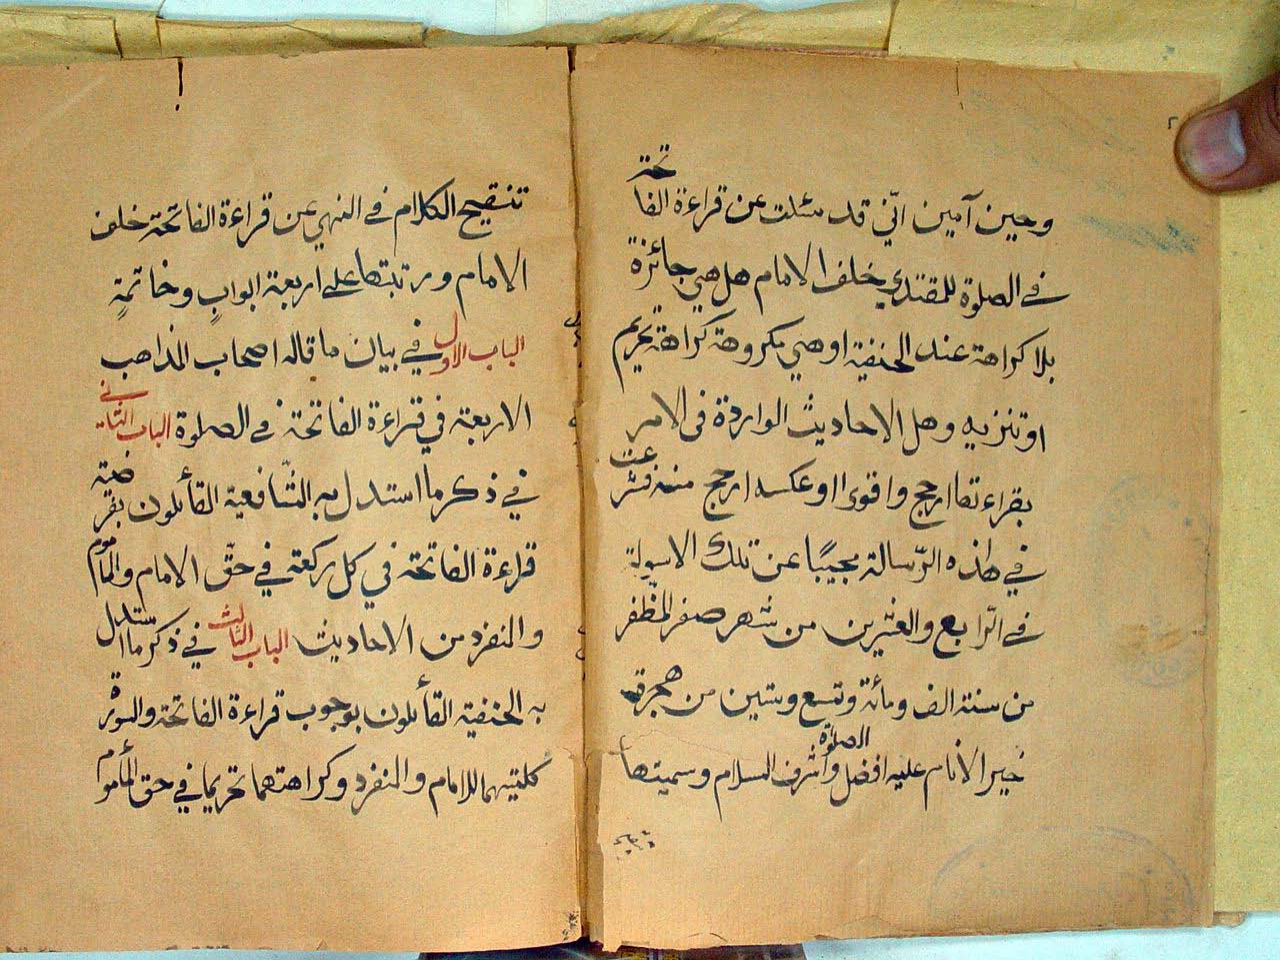 ٢
وحين آمين انّي قد سئلت عن قراءة الفاتحة
في الصلوة للمقتدي خلف الامام هل هي جائزة
بلا كراهة عند الحنفية او هي مكروهة كراهة تحريم
او تنزيه وهل الاحاديث الواردة في الامر
بقراءتها ارجح واقوى او عكسه ارجح منه فشرعت
في هذه الرّسالة مجيبًا عن تلك الاسولة
في الرّابع والعشرين من شهر صفر المظّفر
من سنة الف ومأئة وتسع وستين من هجرة
خير الانام عليه افضل الصلوة واشرف السلام وسميتها
تنقيح
تنقيح الكلام في النهي عن قراءة الفاتحة خلف
الامام ورتبتها على اربعة ابوابٍ وخاتمةٍ
الباب الاول في بيان ما قاله اصحاب المذاهب
الاربعة في قراءة الفاتحة في الصلوة الباب الثاني
في ذكر ما استدل به الشّافعية القائلون بفرضية
قراءة الفاتحة في كل ركعة في حقّ الامام والمأموم
والمنفرد من الاحاديث الباب الثالث في ذكر ما استدل
به الحنفية القائلون بوجوب قراءة الفاتحة والسورة
كلتيهما للامام والمنفرد وكراهتهما تحريما في حق المأموم